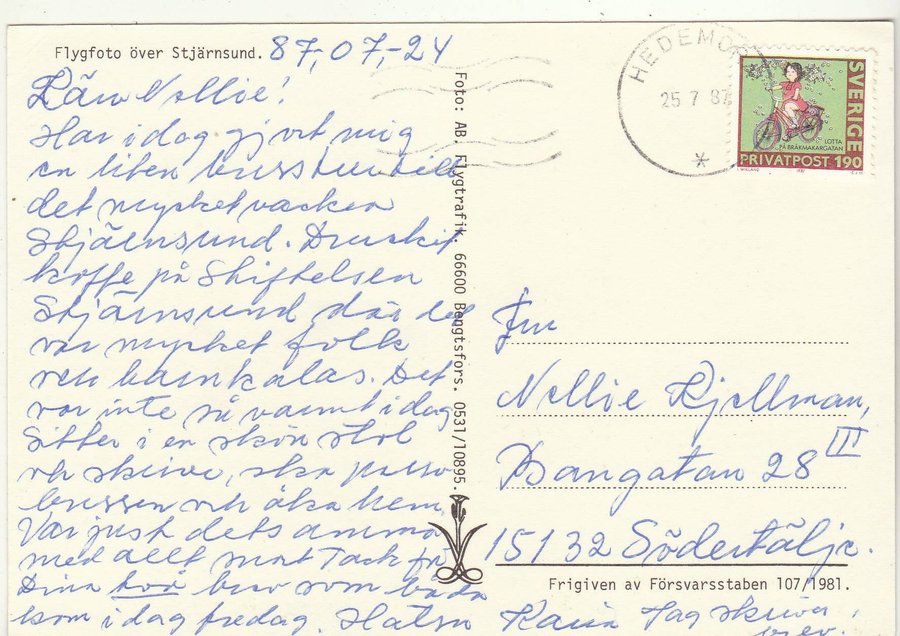 Flygfoto över Stjärnsund. 87,07,-24
Kära Nellie!
Har idag gjort mig
en liten busstur till
det mycket vackra
Stjärnsund. Druckit
kaffe på Stiftelsen
Stjärnsund där det
var mycket folk
och barnkalas. Det
var inte så varmt idag
Sitter i en skön stol
och skriver, ska passa
bussen och åka hem.
Var just det samma
med allt mat Tack för
Dina två brev som båda
kom i dag fredag. Hälsn Karin Jag skriver
Foto: AB. Flygtrafik. 66600 Bengtsfors. 0531/10895.
HEDEMORA
25 7 87
SVERIGE
LOTTA
PÅ BRÅKMAKARGATAN
PRIVATPOST 190
I. WIKLAND 1987
Fru
Nellie Kjellman,
Bangatan 28 III
15132 Södertälje.
Frigiven av Försvarsstaben 107/1981.